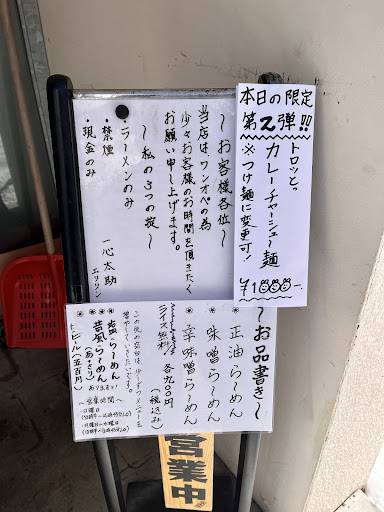 本日の限定
第2弾!!
トロッと。
カレーチャーシュー麺
※つけ麺に変更可!
〜お客様各位〜
当店はワンオペの為
少々お客様のお時間を頂きたく
お願い申し上げます。
〜私の3つの掟〜
ラーメンのみ
・禁煙
・現金のみ
一心太助
エリリン
〜お品書き〜
正油らーめん
味噌らーめん
辛味噌らーめん
各900円
(税込み)
ライス無料
塩らーめん
昔風らーめん
(あっさり)
トッピン(五百円)
〜営業時間〜
・日曜日
・月曜日〜水曜日
営業中